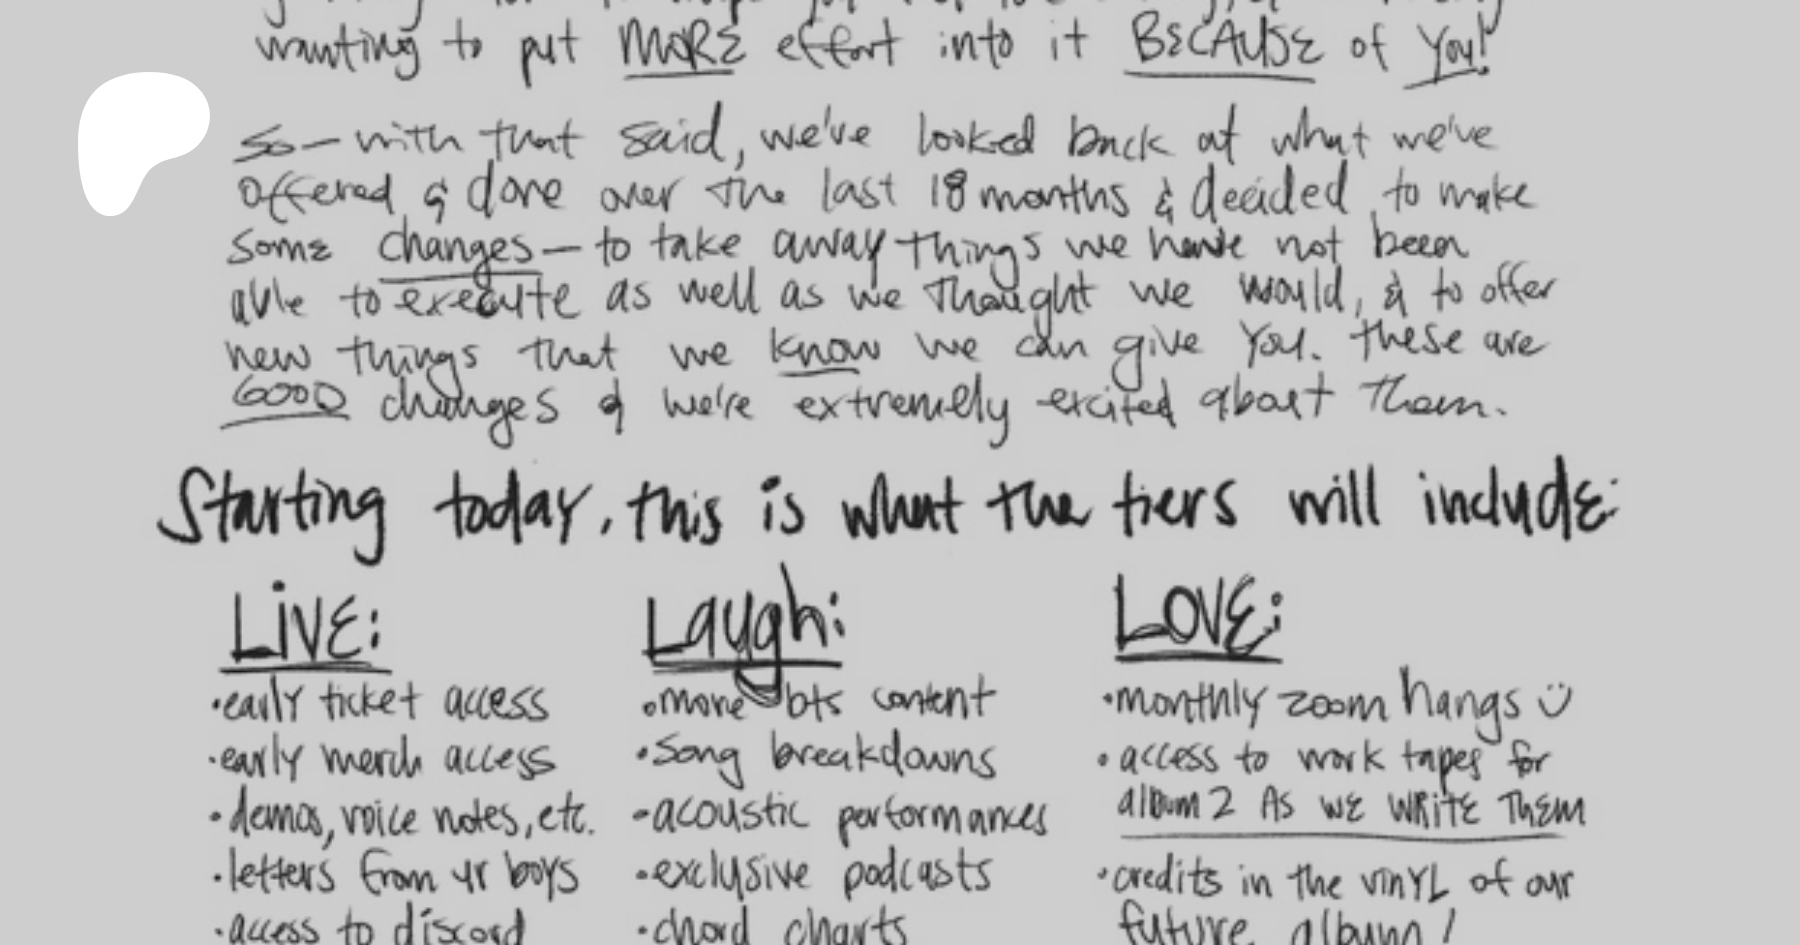 wanting to put MORE effort into it BECAUSE of You!
So— with that said, we've looked back at what we've
offered & done over the last 18 months & decided to make
some changes— to take away things we have not been
able to execute as well as we thought we would, & to offer
new things that we know we can give you. These are
GOOD changes & we're extremely excited about them.
Starting today, this is what the tiers will include:
LIVE: Laugh: LOVE:
·early ticket access ·more bts content ·monthly zoom hangs
·early merch access ·song breakdowns ·access to work tapes for
·demos, voice notes, etc. ·acoustic performances album 2 AS WE WRITE THEM
·letters from yr boys ·exclusive podcasts ·credits in the vinyl of our
·access to discord ·chord charts future album!